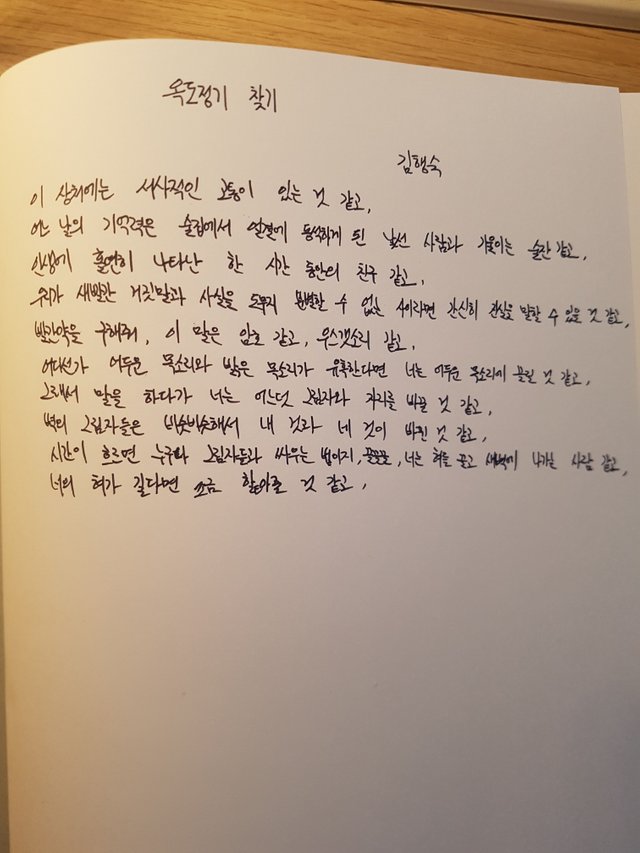 옥도정기 찾기
김행숙
이 상처에는 서사적인 고통이 있는 것 같고,
어느 날의 기억력은 술집에서 얼결에 동석하게 된 낯선 사람과 기울이는 술잔 같고,
인생에 홀연히 나타난 한 시간 동안의 친구 같고,
우리가 새빨간 거짓말과 사실을 도무지 분별할 수 없는 사이라면 간신히 진실을 말할 수 있을 것 같고,
빨간약을 구해줘, 이 말은 암호 같고, 우스갯소리 같고,
어디선가 어두운 목소리와 밝은 목소리가 유혹한다면 너는 어두운 목소리에 끌릴 것 같고,
그래서 말을 하다가 너는 어느덧 그림자와 자리를 바꿀 것 같고,
벽의 그림자들은 비슷비슷해서 내 것과 네 것이 바뀐 것 같고,
시간이 흐르면 누구나 그림자들과 싸우는 법이지, 끌끌끌, 너는 혀를 끌고 새벽에 나가는 사람 같고,
너의 혀가 길다면 조금 핥아줄 것 같고,